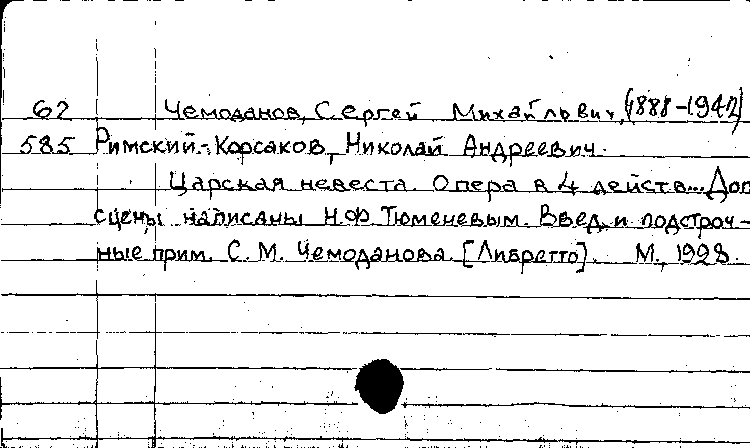 62 Чемоданов, Сергей Михайлович, (1888-1942)
585 Римский-Корсаков, Николай Андреевич.
Царская невеста. Опера в 4 действ... Доп
сцены написаны Н.Ф. Тюменевым. Введ. и подстроч-
ные прим. С. М. Чемоданова. [Либретто]. М., 1928.